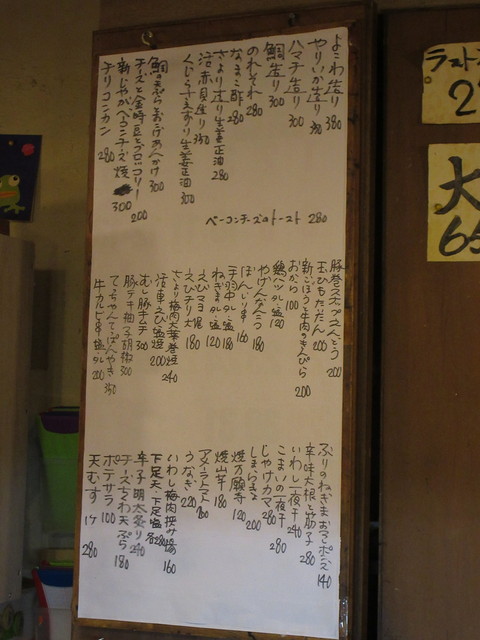 よこわ造り 380
やりいか造り 350
ハマチ造り 300
鯛造り 300
のれそれ 280
なまこ酢 280
さより造り生姜正油 280
活赤貝造り 350
くじらすえずり生姜正油 300
鯛の天ぷらとおこげあんかけ 300
チーズと金時豆とブロッコリー 200
新じゃがベーコンチーズ焼 300
チリコンカン 280
ベーコンチーズのトースト 280
豚巻スナップえんどう 200
玉ひもただん 200
新ごぼうと牛肉のきんぴら 200
おから 100
鶏ハツタレ・塩 120
やげんなんこつ 180
ぼんじり串 160
手羽中タレ・塩 180
ねぎまタレ・塩 120
えびマヨ 180
えびチリ大 180
さより梅肉大葉巻揚 240
活車えび塩焼 200
むし豚キムチ 300
豚テキ柚子胡椒 300
てっちゃんてっぱんやき 350
牛カルビ串塩・タレ 200
ぶりのねぎまおろしポン酢 140
辛味大根と筋子 280
いわし一夜干 240
こまい一夜干 280
じゃけカマ 280
しまらっきょ 200
焼万願寺 120
焼山芋 180
アメーラトマト 200
うなぎ 220
いわし梅肉挟み揚 160
下足天、下足塩 各280
辛子明太炙り 240
チーズちくわ天ぷら 180
ポテサラ 100
天むす 1ケ 280
ラスト
2
大
65